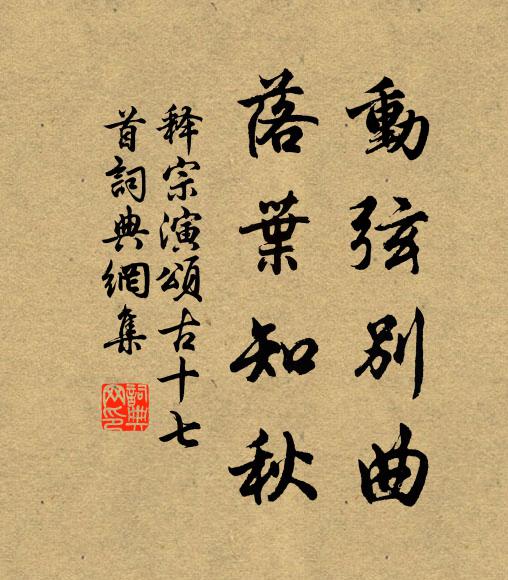 動弦別曲
落葉知秋
释宗演頌古十七
首詞典網集
詞典
网印